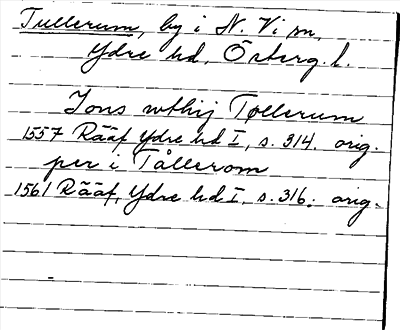 Tullerum, by i N. Vi sn,
Ydre hd, Österg. l.
Jons wthij Tøllerum
1557 Rääf Ydre hd I, s. 314. orig.
per i Tållerom
1561 Rääf, Ydre hd I, s. 316. orig.